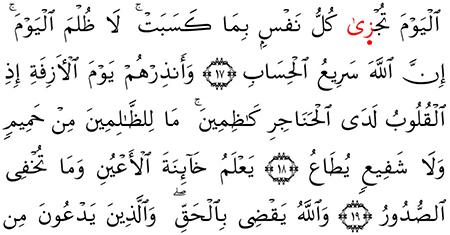 ٱلْيَوْمَ تُجْز۪ىٰ كُلُّ نَفْسِۭ بِمَا كَسَبَتْ ۚ لَا ظُلْمَ ٱلْيَوْمَ ۚ
إِنَّ ٱللَّهَ سَرِيعُ ٱلْحِسَابِ ﴿١٧﴾ وَأَنذِرْهُمْ يَوْمَ ٱلْأَزِفَةِ إِذِ
ٱلْقُلُوبُ لَدَى ٱلْحَنَاجِرِ كَٰظِمِينَ ۚ مَا لِلظَّٰلِمِينَ مِنْ حَمِيمٍ
وَلَا شَفِيعٍ يُطَاعُ ﴿١٨﴾ يَعْلَمُ خَآئِنَةَ ٱلْأَعْيُنِ وَمَا تُخْفِى
ٱلصُّدُورُ ﴿١٩﴾ وَٱللَّهُ يَقْضِى بِٱلْحَقِّ ۖ وَٱلَّذِينَ يَدْعُونَ مِن